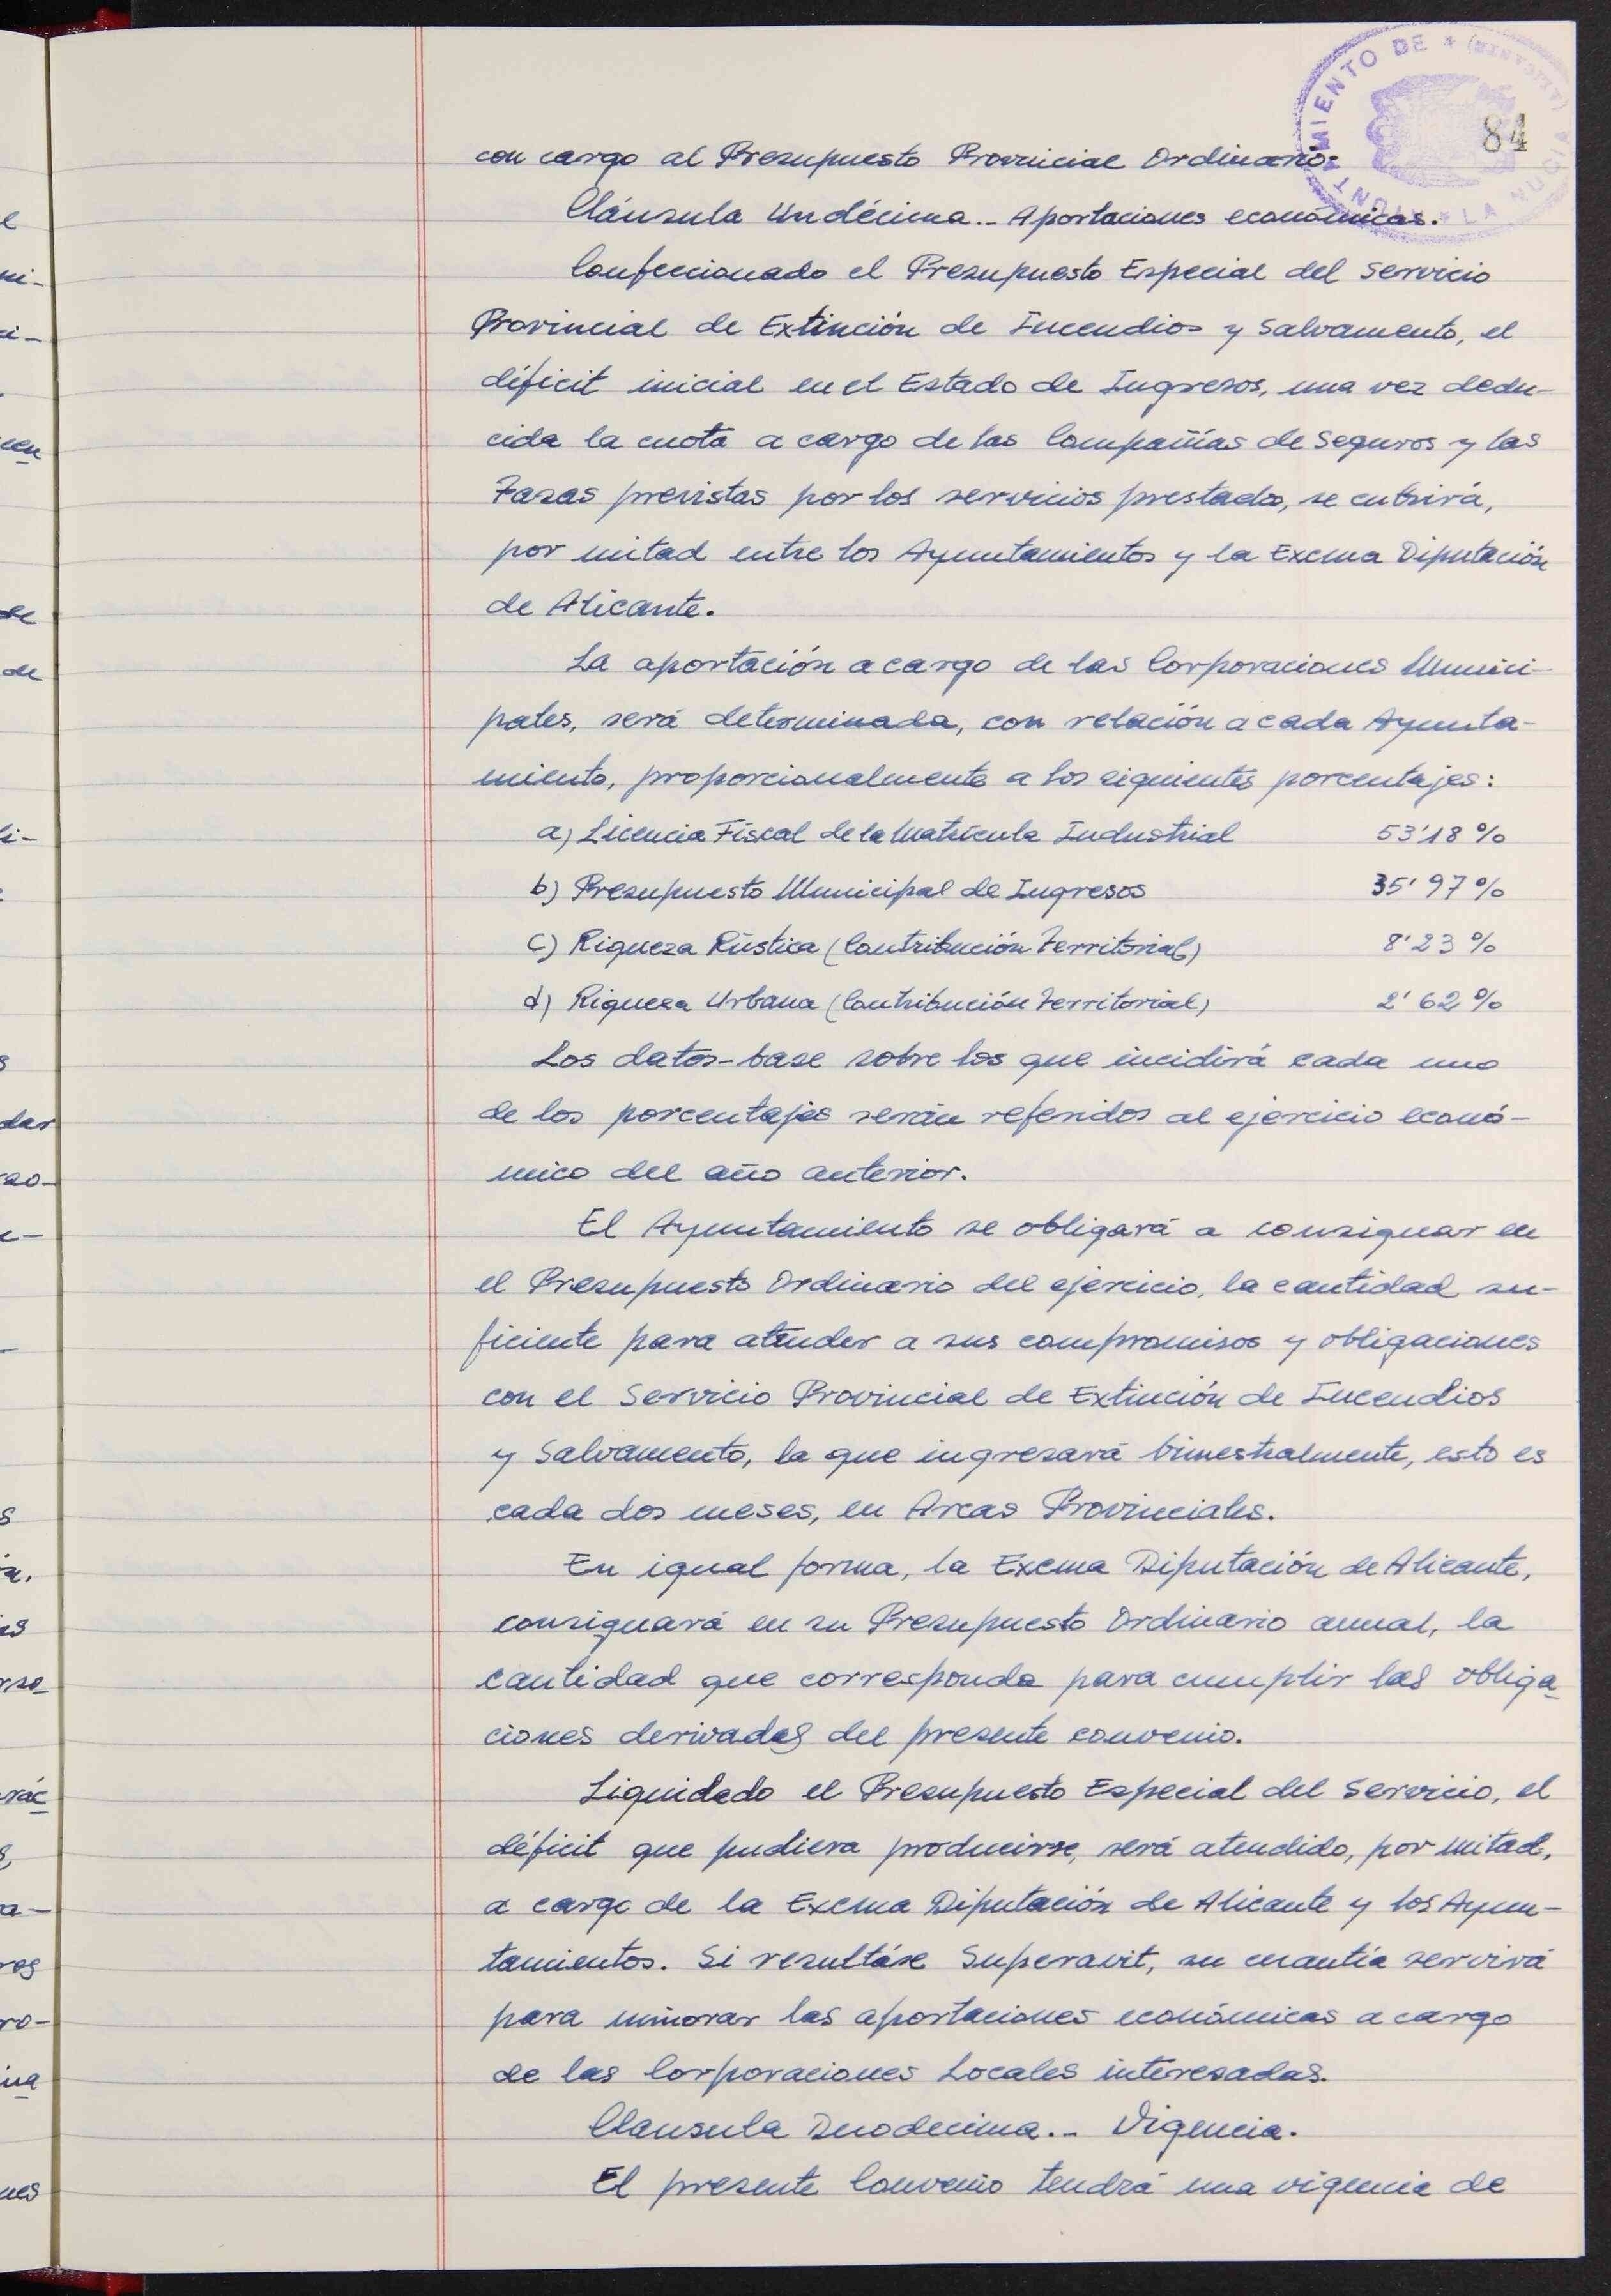 84
AYUNTAMIENTO DE * (ALICANTE) * LA NUCIA
con cargo al Presupuesto Provincial Ordinario.
Cláusula Undécima.- Aportaciones económicas.
Confeccionado el Presupuesto Especial del Servicio
Provincial de Extinción de Incendios y Salvamento, el
déficit inicial en el Estado de Ingresos, una vez dedu-
cida la cuota a cargo de las Compañías de Seguros y las
Tasas previstas por los servicios prestados, se cubrirá,
por mitad entre los Ayuntamientos y la Excma Diputación
de Alicante.
La aportación a cargo de las Corporaciones Munici-
pales, será determinada, con relación a cada Ayunta-
miento, proporcionalmente a los siguientes porcentajes:
a) Licencia Fiscal de la Matrícula Industrial 53'18 %
b) Presupuesto Municipal de Ingresos 35'97 %
c) Riqueza Rústica (Contribución Territorial) 8'23 %
d) Riqueza Urbana (Contribución Territorial) 2'62 %
Los datos-base sobre los que incidirá cada uno
de los porcentajes serán referidos al ejercicio econó-
mico del año anterior.
El Ayuntamiento se obligará a consignar en
el Presupuesto Ordinario del ejercicio, la cantidad su-
ficiente para atender a sus compromisos y obligaciones
con el Servicio Provincial de Extinción de Incendios
y Salvamento, la que ingresará bimestralmente, esto es
cada dos meses, en Arcas Provinciales.
En igual forma, la Excma Diputación de Alicante,
consignará en su Presupuesto Ordinario anual, la
cantidad que corresponda para cumplir las obliga-
ciones derivadas del presente convenio.
Liquidado el Presupuesto Especial del Servicio, el
déficit que pudiera producirse, será atendido, por mitad,
a cargo de la Excma Diputación de Alicante y los Ayun-
tamientos. Si resultáse Superavit, su cuantía servirá
para minorar las aportaciones económicas a cargo
de las Corporaciones Locales interesadas.
Clausula Duodecima.- Vigencia.
El presente Convenio tendrá una vigencia de